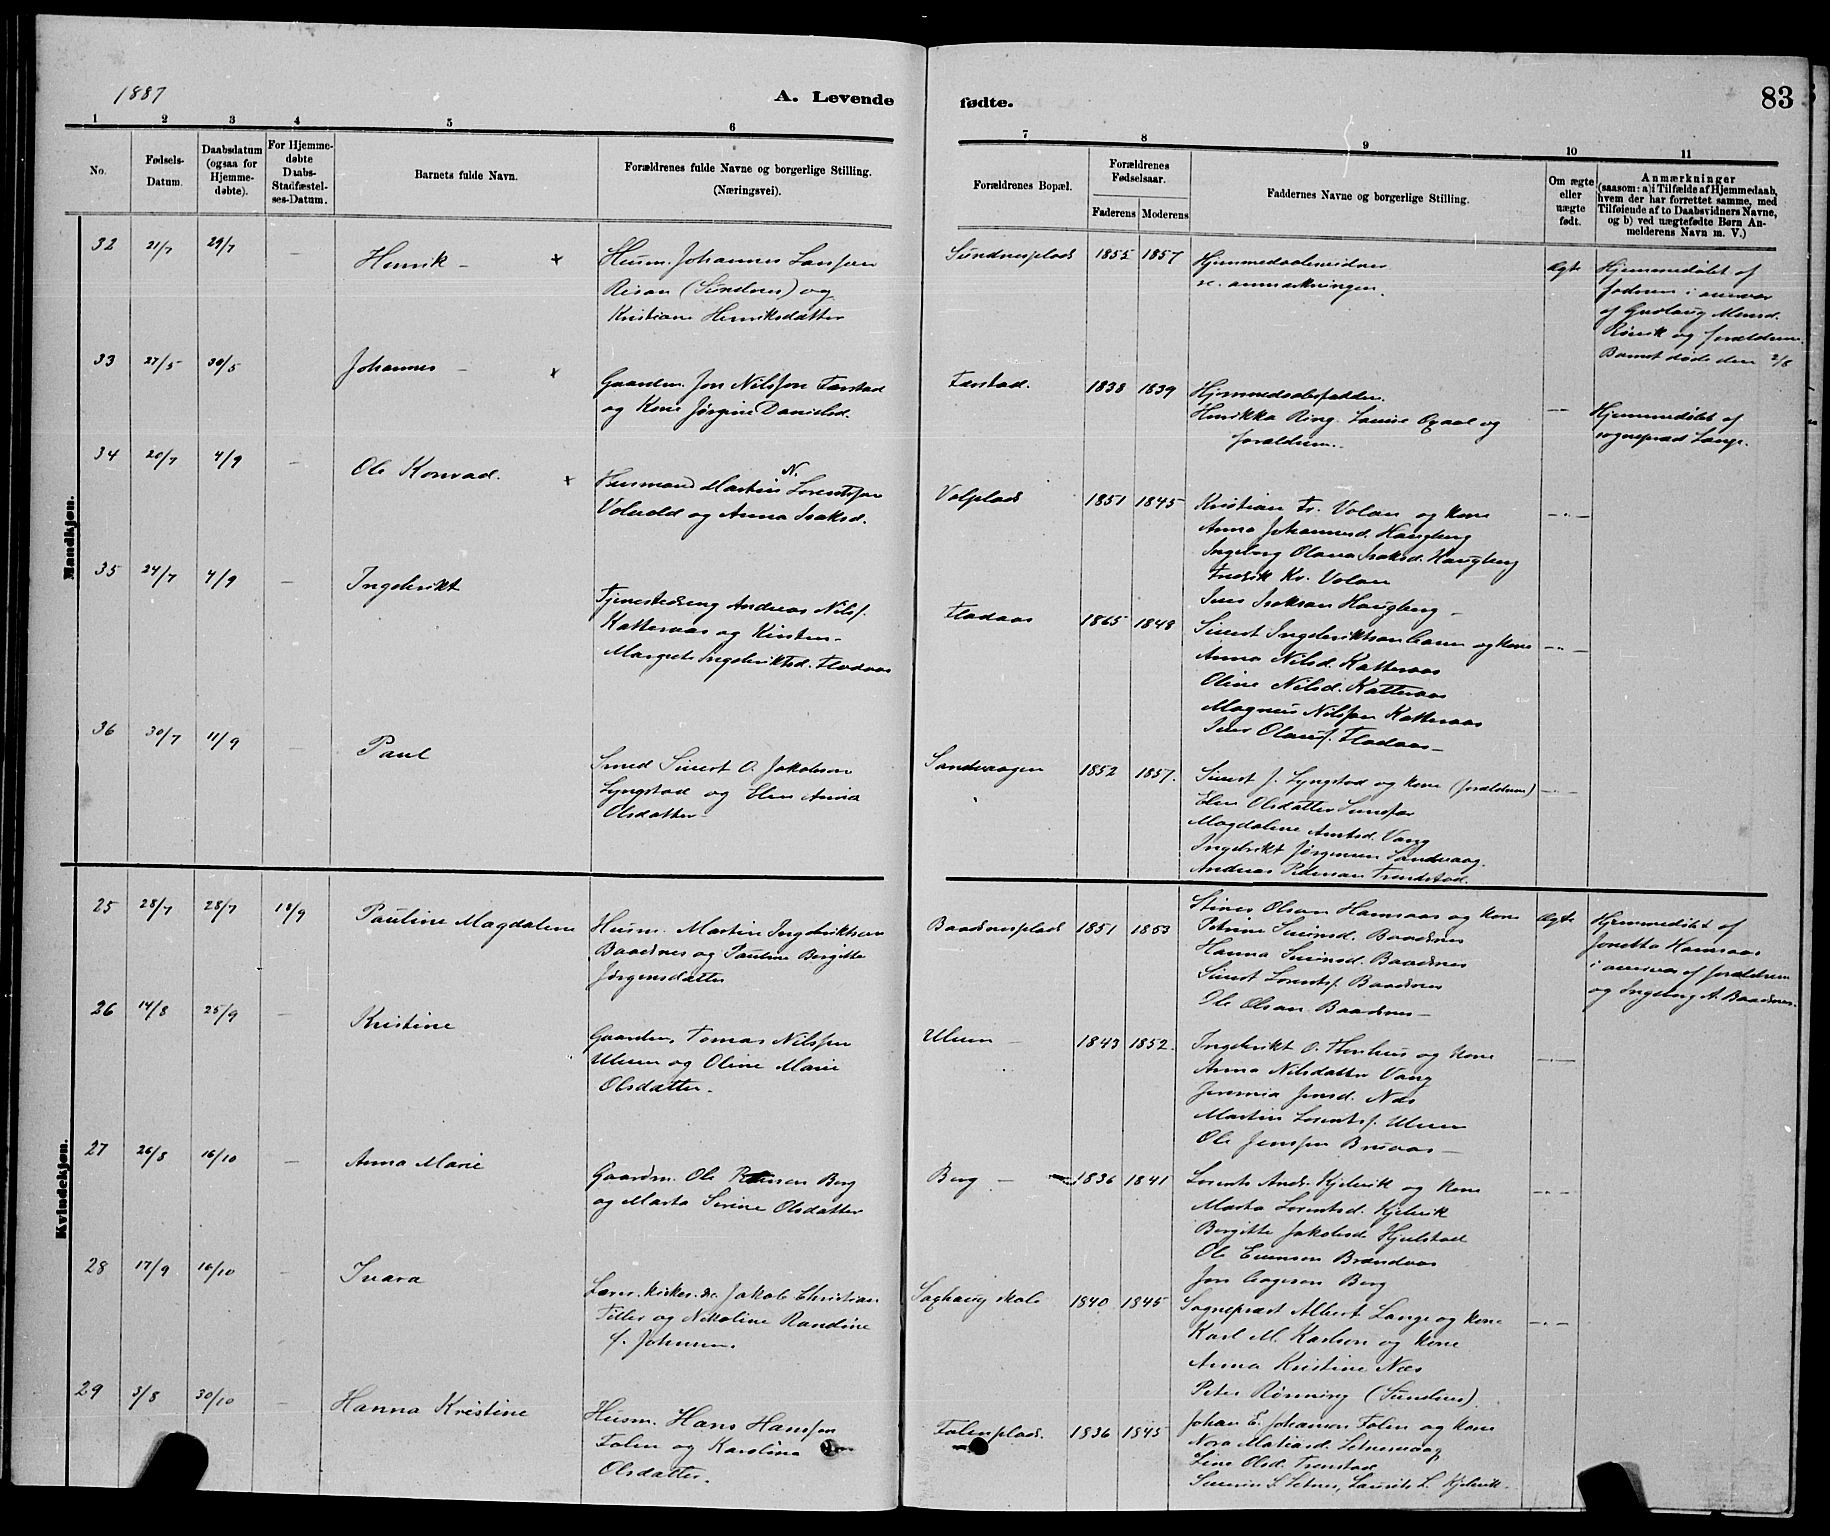 1887
A. Levende
fødte.
83
1 2 3 4 5 6 7 8 9 10 11
No.
Fødsels-
Datum.
Daabsdatum
(ogsaa for
Hjemme-
døbte).
For Hjemme-
døbte
Daabs-
Stadfæstel-
ses-Datum.
Barnets fulde Navn.
Forældrenes fulde Navne og borgerlige Stilling.
(Næringsvei).
Forældrenes Bopæl.
Forældrenes
Fødselsaar.
Faderens Moderens
Faddernes Navne og borgerlige Stilling.
Om ægte
eller
uægte
født.
Anmærkninger
(saasom: a) i Tilfælde af Hjemmedaab,
hvem der har forrettet samme, med
Tilføiende af to Daabsvidners Navne,
og b) ved uægtefødte Børn An-
melderens Navn m. V.)
Mandkjøn.
32 21/7 29/7 — Henrik — x
Husm. Johannes
(Sundnes) og
Kristiane Henriksdatter
Sundnesplads 1855 1857
Hjemmedaabsvidner
se anmærkningen.
Ægte
Hjemmedøbt af
faderen i nærvær
af
og forældrene.
Barnet døde den 2/8
33 27/5 30/5 Johannes — x
Gaardm. Jon Nilssen Tarstad
og Kone Jørgine Danielsd.
Tarstad. 1838 1839
Hjemmedaabsfaddere.
Henrikka Ring. og
forældrene.
—
Hjemmedøbt af
sogneprest Lange.
34 20/7 4/9 — Ole Konrad. x
Husmand Martin N. Lorentsen
og Anna Isaksd.
Volplads 1851 1845
Kristian Fr. Volan og kone
Anna Johannesd. Haugberg
Ingeborg Olava Isaksd. Haugberg
Fredrik Kr. Volan
Iver Isaksen Haugberg —
—„—
35 24/7 4/9 — Ingebrikt
Tjenestedreng Andreas Nilss.
Katteraas og Kirsten
Margrete Ingebriktsd. Fladaas
Fladaas 1865 1848
Sivert Ingebriktsen og kone
Anna Nilsd. Katteraas
Oline Nilsd. Katteraas
Magnus Nilssen Katteraas
Iver Olauss. Fladaas —
—„—
36 30/7 11/9 — Paul
Smed Sivert O. Jakobsen
Lyngstad og Elen Anna
Olsdatter —
Sandvaagen 1852 1857.
Sivert J. Lyngstad og kone (forældrene)
Elen Olsdatter
Magdalene Arntsd. Vang
Ingebrikt Jørgensen Sandvaag.
Andreas Pedersen
—„—
Kvindekjøn.
25 28/7 28/7 18/9 Pauline Magdalene
Husm. Martin Ingebriktsen
Baadsnes og Pauline Bergitte
Jørgensdatter
Baadsnesplads 1851 1853
Olsen Hamsaas og kone
Petrine Baadsnes
Hanna Baadsnes
Sivert Lorents. Baadsnes
Ole Olsen Baadsnes —
Ægte
Hjemmedøbt af
Jonetta Hamsaas
i nærvær af forældrene
og Ingeborg A. Baadsnes.
26 14/8 25/9 — Kristine
Gaardm. Tomas Nilssen
Ulven og Oline Marie
Olsdatter.
Ulven — 1843 1852.
Ingebrikt O. og kone
Anna Nilsdatter Vang
Jensd. Næs
Martin Lorents. Ulven
Ole Jenssen Brusaas —
—„—
27 26/8 16/10 — Anna Marie
Gaardm. Ole Berg
og Marta Sirine Olsdatter
Berg — 1836 1841
Lorents Andr. Kjelvik og kone
Marta Lorentsd. Kjelvik
Bergitte Jakobsd. Hjulstad
Ole Evensen Brandaas
Jon Aagesen Berg
—„—
28 17/9 16/10 — Ivara
Lærer, kirkes. &c. Jakob Christian
Tiller og Nikoline Randine
f. Johnsen.
Saghaug skole 1840 1845
Sogneprest Albert Lange og kone
Karl M. Karlsen og kone
Anna Kristine Næs
Peter Rønning (Sundnes)
—„—
29 3/8 30/10 — Hanna Kristine
Husm. Hans Hanssen
Folen og Karolina
Olsdatter.
Folenplads. 1836 1845
Johan E. Johansen Folen og kone
Nora
Line Olsd.
Laurits L. Kjelvik.